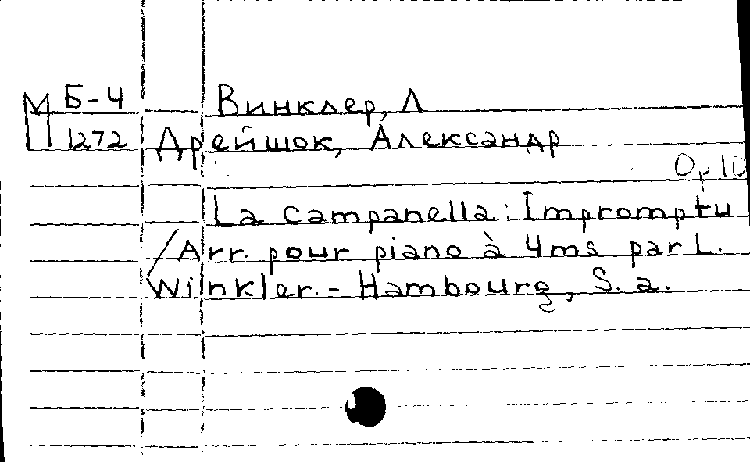 М Б-4 Винклер, Л
1272 Дрейшок, Александр
Op 10
La campanella: Impromptu
/Arr. pour piano à 4ms par L.
Winkler. - Hambourg, S. a.